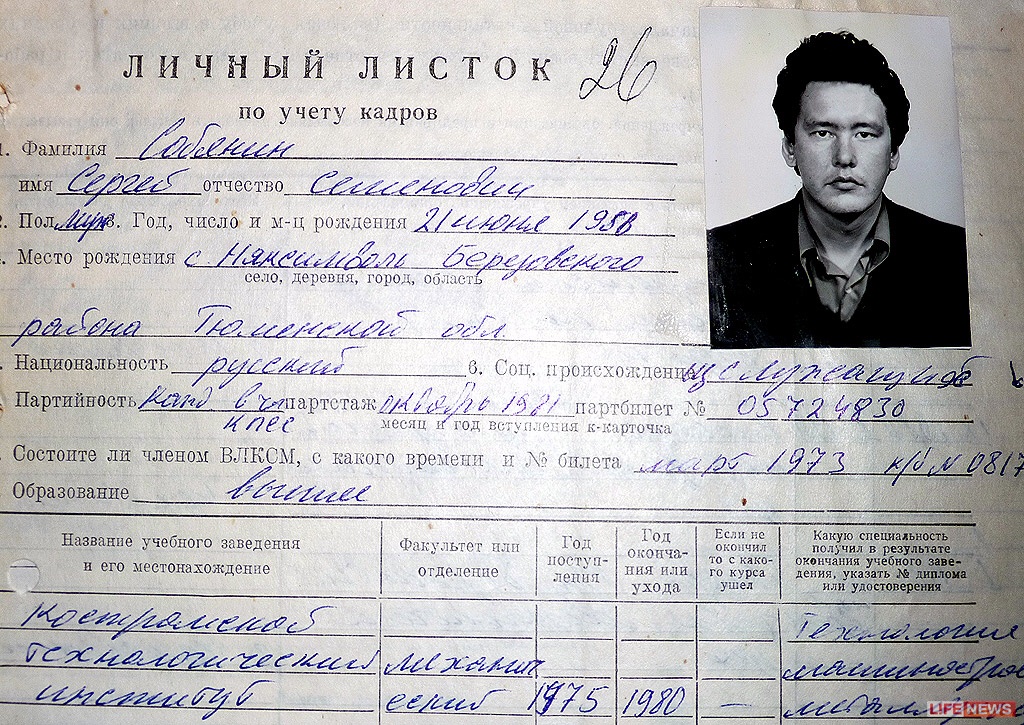 ЛИЧНЫЙ ЛИСТОК 26
по учету кадров
1. Фамилия Собянин
имя Сергей отчество Семенович
2. Пол муж 3. Год, число и м-ц рождения 21 июня 1958
. Место рождения с Няксимволь Березовского
село, деревня, город, область
района Тюменской обл
. Национальность русский 6. Соц. происхождение из служащих
Партийность канд в чл партстаж октябрь 1981 партбилет № 05724830
КПСС месяц и год вступления к-карточка
. Состоите ли членом ВЛКСМ, с какого времени и № билета март 1973 к/б N 0817
Образование высшее
Название учебного заведения и его местонахождение
Факультет или отделение
Год поступ- ления
Год оконча- ния или ухода
Если не окончил то с како- го курса ушел
Какую специальность получил в результате окончания учебного заве- дения, указать № диплома или удостоверения
Костромской Технология
технологический механич машинострое
институт еский 1975 1980 —
LIFE NEWS